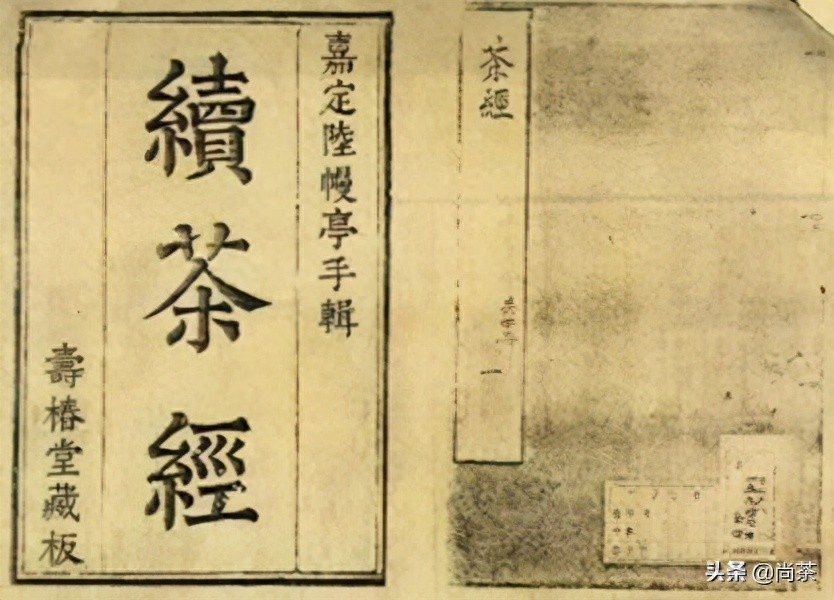 嘉定陸幔亭手輯
續茶經
壽椿堂藏板
茶經
一
头条 @尚茶